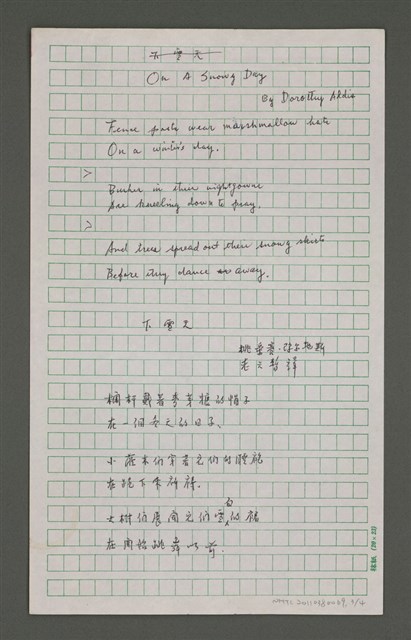 下雪天
On A Snowy Day
By Dorothy Aldis
Fence posts wear marshmallow hats
On a winter's day.
>
Bushes in their nightgowns
Are kneeling down to pray.
>
And trees spread out their snowy skirts
Before they dance away.
下雪天
桃樂賽·
譯
欄杆戴著麥芽糖的帽子
在一個冬天的日子、
小灌木們穿著它們的睡袍
在跪下來祈禱。
大樹們展開它們雪白的裙
在開始跳舞以前.